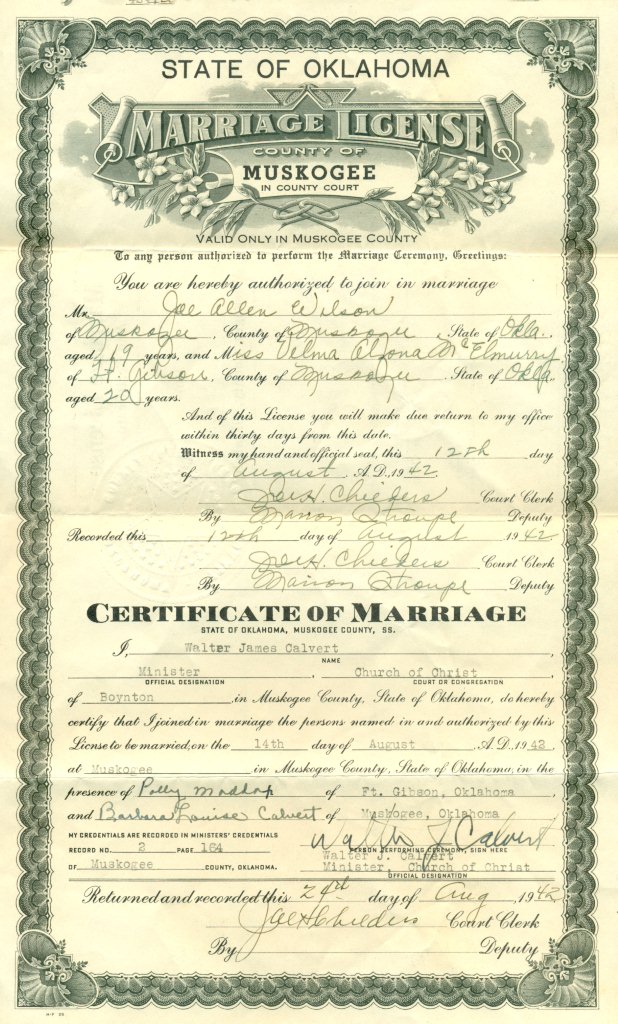 STATE OF OKLAHOMA
MARRIAGE LICENSE
COUNTY OF
MUSKOGEE
IN COUNTY COURT
VALID ONLY IN MUSKOGEE COUNTY
To any person authorized to perform the Marriage Ceremony, Greetings:
You are hereby authorized to join in marriage
Mr. Joe Allen Wilson
of Muskogee, County of Muskogee, State of Okla.
aged 19 years, and Miss Velma Alzona McElmurry
of Ft. Gibson, County of Muskogee. State of Okla.,
aged 20 years.
And of this License you will make due return to my office
within thirty days from this date.
Witness my hand and official seal, this 12th day
of August, A.D. 1942
Joe H. Childers Court Clerk
By Marion Deputy
Recorded this 12th day of August 1942
Joe H. Childers Court Clerk
By Marion Deputy
CERTIFICATE OF MARRIAGE
STATE OF OKLAHOMA, MUSKOGEE COUNTY, SS.
I, Walter James Calvert,
NAME
Minister, Church of Christ,
OFFICIAL DESIGNATION COURT OR CONGREGATION
of Boynton, in Muskogee County, State of Oklahoma, do hereby
certify that I joined in marriage the persons named in and authorized by this
License to be married, on the 14th day of August A.D. 1942,
at Muskogee in Muskogee County, State of Oklahoma, in the
presence of Polly of Ft. Gibson, Oklahoma
and Barbara Louise Calvert of Muskogee, Oklahoma
MY CREDENTIALS ARE RECORDED IN MINISTERS' CREDENTIALS Walter J. Calvert
RECORD NO. 2 PAGE 164 PERSON PERFORMING CEREMONY, SIGN HERE
Walter J. Calvert
OF Muskogee COUNTY, OKLAHOMA. Minister, Church of Christ
OFFICIAL DESIGNATION
Returned and recorded this 24 day of Aug, 1942
Joe H Childers Court Clerk
By Deputy